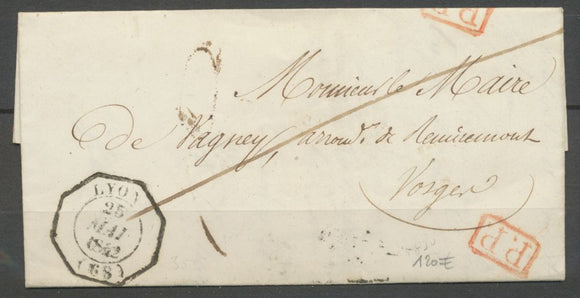 P.P.
Monsieur le Maire
de Vagney, arrondt. de Remiremont
Vosges
LYON
25
MAI
1842
(68)
P.P.
120 €